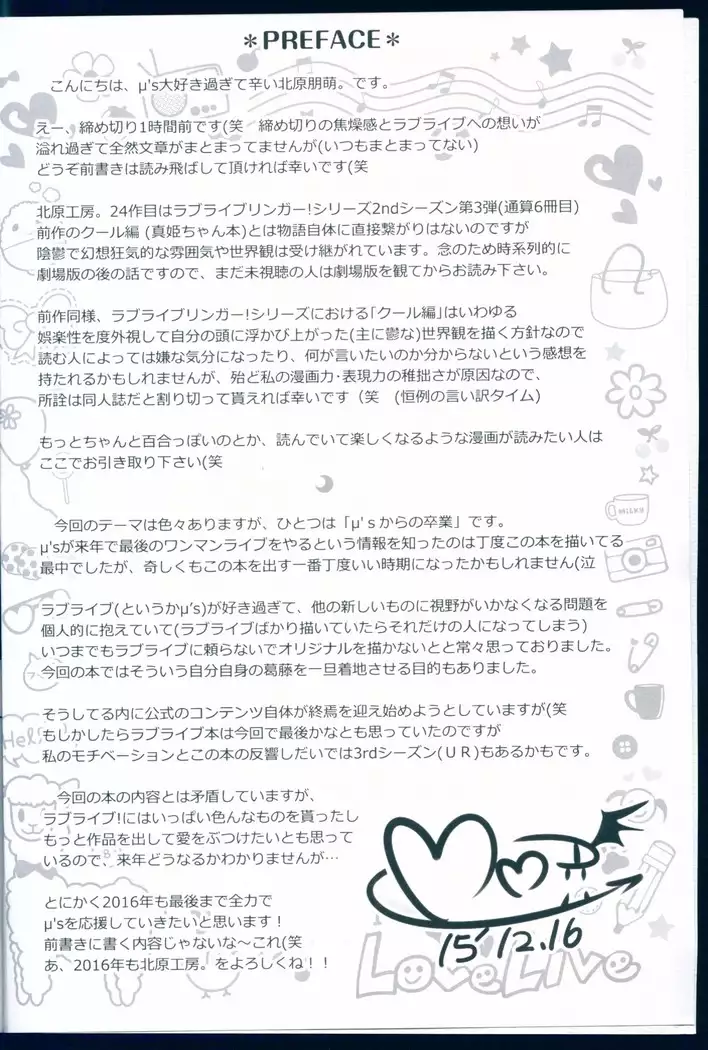 ＊PREFACE＊
こんにちは、μ's大好き過ぎて辛い北原朋萌。です。
えー、締め切り1時間前です(笑　締め切りの焦燥感とラブライブへの想いが
溢れ過ぎて全然文章がまとまってませんが(いつもまとまってない)
どうぞ前書きは読み飛ばして頂ければ幸いです(笑
北原工房。24作目はラブライブリンガー!シリーズ2ndシーズン第3弾(通算6冊目)
前作のクール編 (真姫ちゃん本)とは物語自体に直接繋がりはないのですが
陰鬱で幻想狂気的な雰囲気や世界観は受け継がれています。念のため時系列的に
劇場版の後の話ですので、まだ未視聴の人は劇場版を観てからお読み下さい。
前作同様、ラブライブリンガー!シリーズにおける「クール編」はいわゆる
娯楽性を度外視して自分の頭に浮かび上がった(主に鬱な)世界観を描く方針なので
読む人によっては嫌な気分になったり、何が言いたいのか分からないという感想を
持たれるかもしれませんが、殆ど私の漫画力・表現力の稚拙さが原因なので、
所詮は同人誌だと割り切って貰えれば幸いです（笑　(恒例の言い訳タイム)
もっとちゃんと百合っぽいのとか、読んでいて楽しくなるような漫画が読みたい人は
ここでお引き取り下さい(笑
今回のテーマは色々ありますが、ひとつは「μ'ｓからの卒業」です。
μ'sが来年で最後のワンマンライブをやるという情報を知ったのは丁度この本を描いてる
最中でしたが、奇しくもこの本を出す一番丁度いい時期になったかもしれません(泣
ラブライブ(というかμ's)が好き過ぎて、他の新しいものに視野がいかなくなる問題を
個人的に抱えていて(ラブライブばかり描いていたらそれだけの人になってしまう)
いつまでもラブライブに頼らないでオリジナルを描かないとと常々思っておりました。
今回の本ではそういう自分自身の葛藤を一旦着地させる目的もありました。
そうしてる内に公式のコンテンツ自体が終焉を迎え始めようとしていますが(笑
もしかしたらラブライブ本は今回で最後かなとも思っていたのですが
私のモチベーションとこの本の反響しだいでは3rdシーズン(ＵＲ)もあるかもです。
今回の本の内容とは矛盾していますが、
ラブライブ!にはいっぱい色んなものを貰ったし
もっと作品を出して愛をぶつけたいとも思って
いるので、来年どうなるかわかりませんが…
とにかく2016年も最後まで全力で
μ'sを応援していきたいと思います！
前書きに書く内容じゃないな～これ(笑
あ、2016年も北原工房。をよろしくね！！
15' 12.16
LoveLive
MILKY
Hello